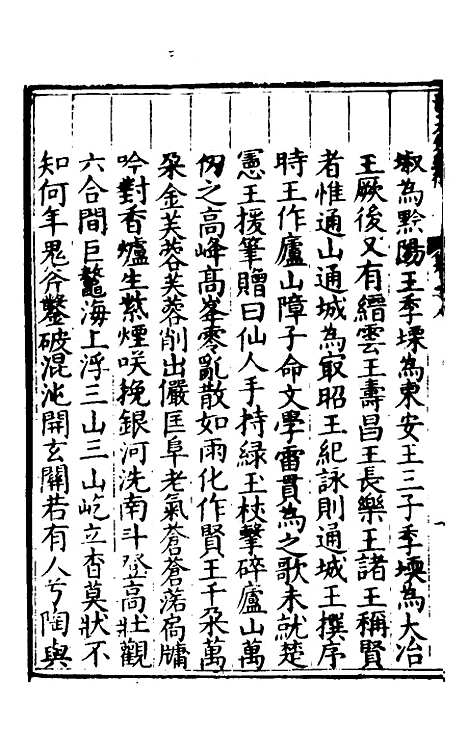 埱為黔陽王季堁為東安王三子季堧為大冶
王厥後又有縉雲王壽昌王長樂王諸王稱賢
者惟通山通城為㝡昭王紀詠則通城王撰序
時王作廬山障子命文學雷貫為之歌未就楚
憲王援筆贈曰仙人手持綠玉杖擊碎廬山萬
仞之高峰高峯零亂散如雨化作賢王千朵萬
朵金芙蓉芙蓉削出儼匡阜老氣蒼蒼落扄牗
吟對香爐生紫煙咲挽銀河洗南斗登高壯觀
六合間巨鼇海上浮三山三山屹立杳莫狀不
知何年鬼斧鑿破混沌開玄關若有人兮陶與